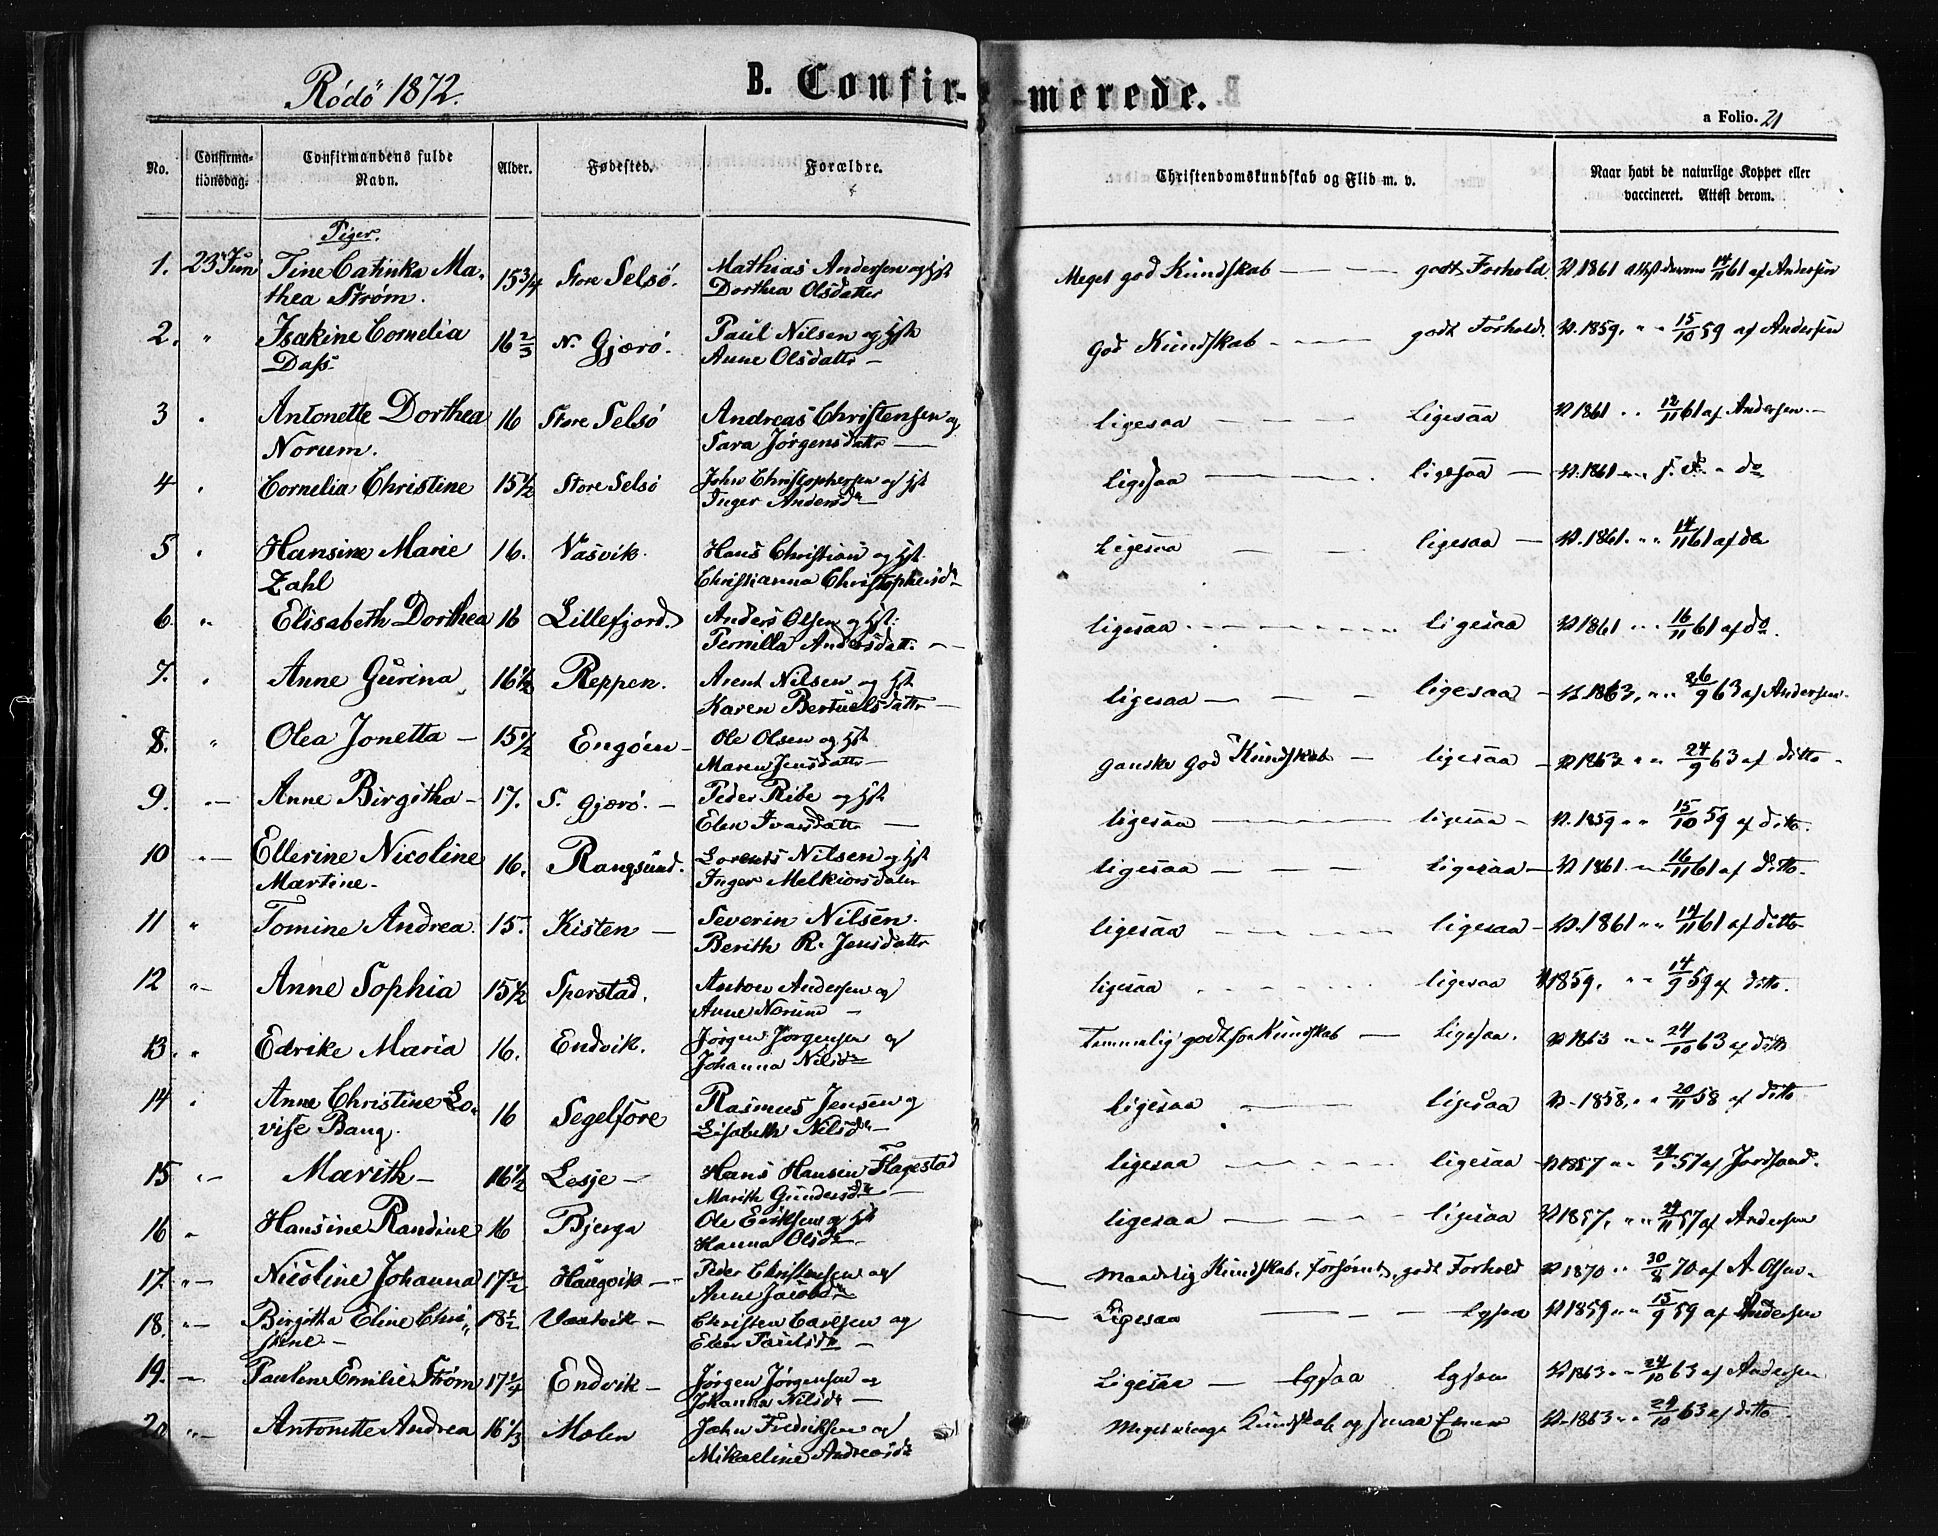 Rödö 1872.
B. Confir-merede.
a Folio. 21
No.
Confirma-tionsdag.
Confirmandens fulde Navn.
Alder.
Fødested.
Forældre.
Christendomskundskab og Flid m. v.
Naar havt de naturlige Kopper eller vaccineret. Attest derom.
Piger.
1. 23 Juni Tine Catinka Ma- 15 3/4 Store Selsö. Mathias Andersen og Hst Meget god Kundskab — godt Forhold. V. 1861 attest derom 14/11 61 af Andersen
thea Strøm. Dorthea Olsdatter
2. " Isakine Cornelia 16 2/3 N. Gjærö. Paul Nilsen og Hst God Kundskab — godt Forhold. V. 1859. " " 15/10 59 af Andersen
Dass. Anne Olsdattr —
3 " Antonette Dorthea 16 Store Selsö Andreas Christensen og ligesaa — ligesaa V. 1861 " " 12/11 61 af Andersen. —
Norum. Sara Jørgensdattr —
4 " Cornelia Christine 15 1/2 Store Selsö John Christophersen og Hst ligesaa — ligesaa — V. 1861 " " s. d. " do
Inger Andersdr
5 " Hansine Marie 16. Vasvik. Hans Christian og Hst. Ligesaa — ligesaa — V. 1861. " " 14/11 61 af do
Zahl Christianna Christophersdr
6. " Elisabeth Dorthea 16 Lillefjord. Anders Olsen og Hst. ligesaa — ligesaa V. 1861 " " 16/11 61 af do.
Pernilla Andersdatt. —
7. " Anne Gurina 16 1/2 Reppen. Arent Nilsen og Hst ligesaa — ligesaa — V. 1863, " " 26/9 63 af Andersen.
Karen Bertuelsdattr —
8. " Olea Jonetta — 15 1/2 Engöen — Ole Olsen og Hst ganske god Kundskab — ligesaa — V. 1863 " " 24/9 63 af ditto
Maren Jensdattr —
9. " — Anne Birgitha — 17. S. Gjærö. — Peder Ribe og Hst ligesaa — ligesaa — V. 1859 " " 15/10 59 af ditto.
Elen Ivarsdattr —
10 " — Ellerine Nicoline 16. Rangsund. Lorents Nilsen og Hst ligesaa — ligesaa — V. 1861 " " 16/11 61 af ditto.
Martine. Inger Melkiorsdatter
11 " Tomine Andrea. 15. Kisten — Severin Nilsen. ligesaa — ligesaa — V. 1861 " " 14/11 61 af ditto
Berith R. Jensdattr
12 " Anne Sophia 15 1/2 Sperstad. Anton Andersen og ligesaa — ligesaa V. 1859. " " 14/9 59 af ditto.
Anne Norum —
13. " Edrike Maria 16. Endvik. Jørgen Jørgensen og Temmelig god Kundskab — ligesaa. V. 1863 " " 24/10 63 af ditto
Johanna Nilsdr
14 " Anne Christine Lo- 16 Segelfore Rasmus Jensen og ligesaa — ligesaa V. 1858. " " 20/11 58 af ditto
vise Bang. Lisabeth Nilsdr —
15 " — Marith — 16 1/2 Lesje — Hans Hansen Flagestad ligesaa — ligesaa — V. 1857 " " 24/1 57 af
Marith Gundersdr —
16 " Hansine Randine 16 Bjerga Ole Eriksen og Hst ligesaa — ligesaa V. 1857. " " 24/11 57 af Andersen
Hanna Olsdr.
17. " — Nicoline Johanna 17 1/2 Haugvik — Peder Christensen og Maadelig Kundskab, forsömt, godt Forhold V. 1870 " 30/8 70 af A Olsen.
Anne Jacobsdr
18. " — Birgitha Eline Chri- 18 1/2 — Christen Carlsen og Ligesaa — Lgsaa V. 1859 " " 15/9 59 af Andersen
stine — Elen Paulsdr —
19. — Pauline Emilie Strøm 17 1/4 Endvik — Jørgen Jørgensen og Ligesaa — lgsaa lgsaa V. 1863 " " 24/10 63 af Andersen
Johanna Nilsdr —
20 " — Antonette Andrea 16 1/3 Molen John Fredriksen og Meget svage Kundskab og smaa Evner V. 1863 " " 24/10 63 af ditto.
Mikaeline Andreasdr